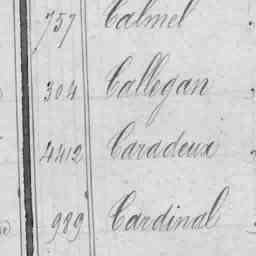 757 Calmel
304 Callegan
4412 Caradeux
989 Cardinal